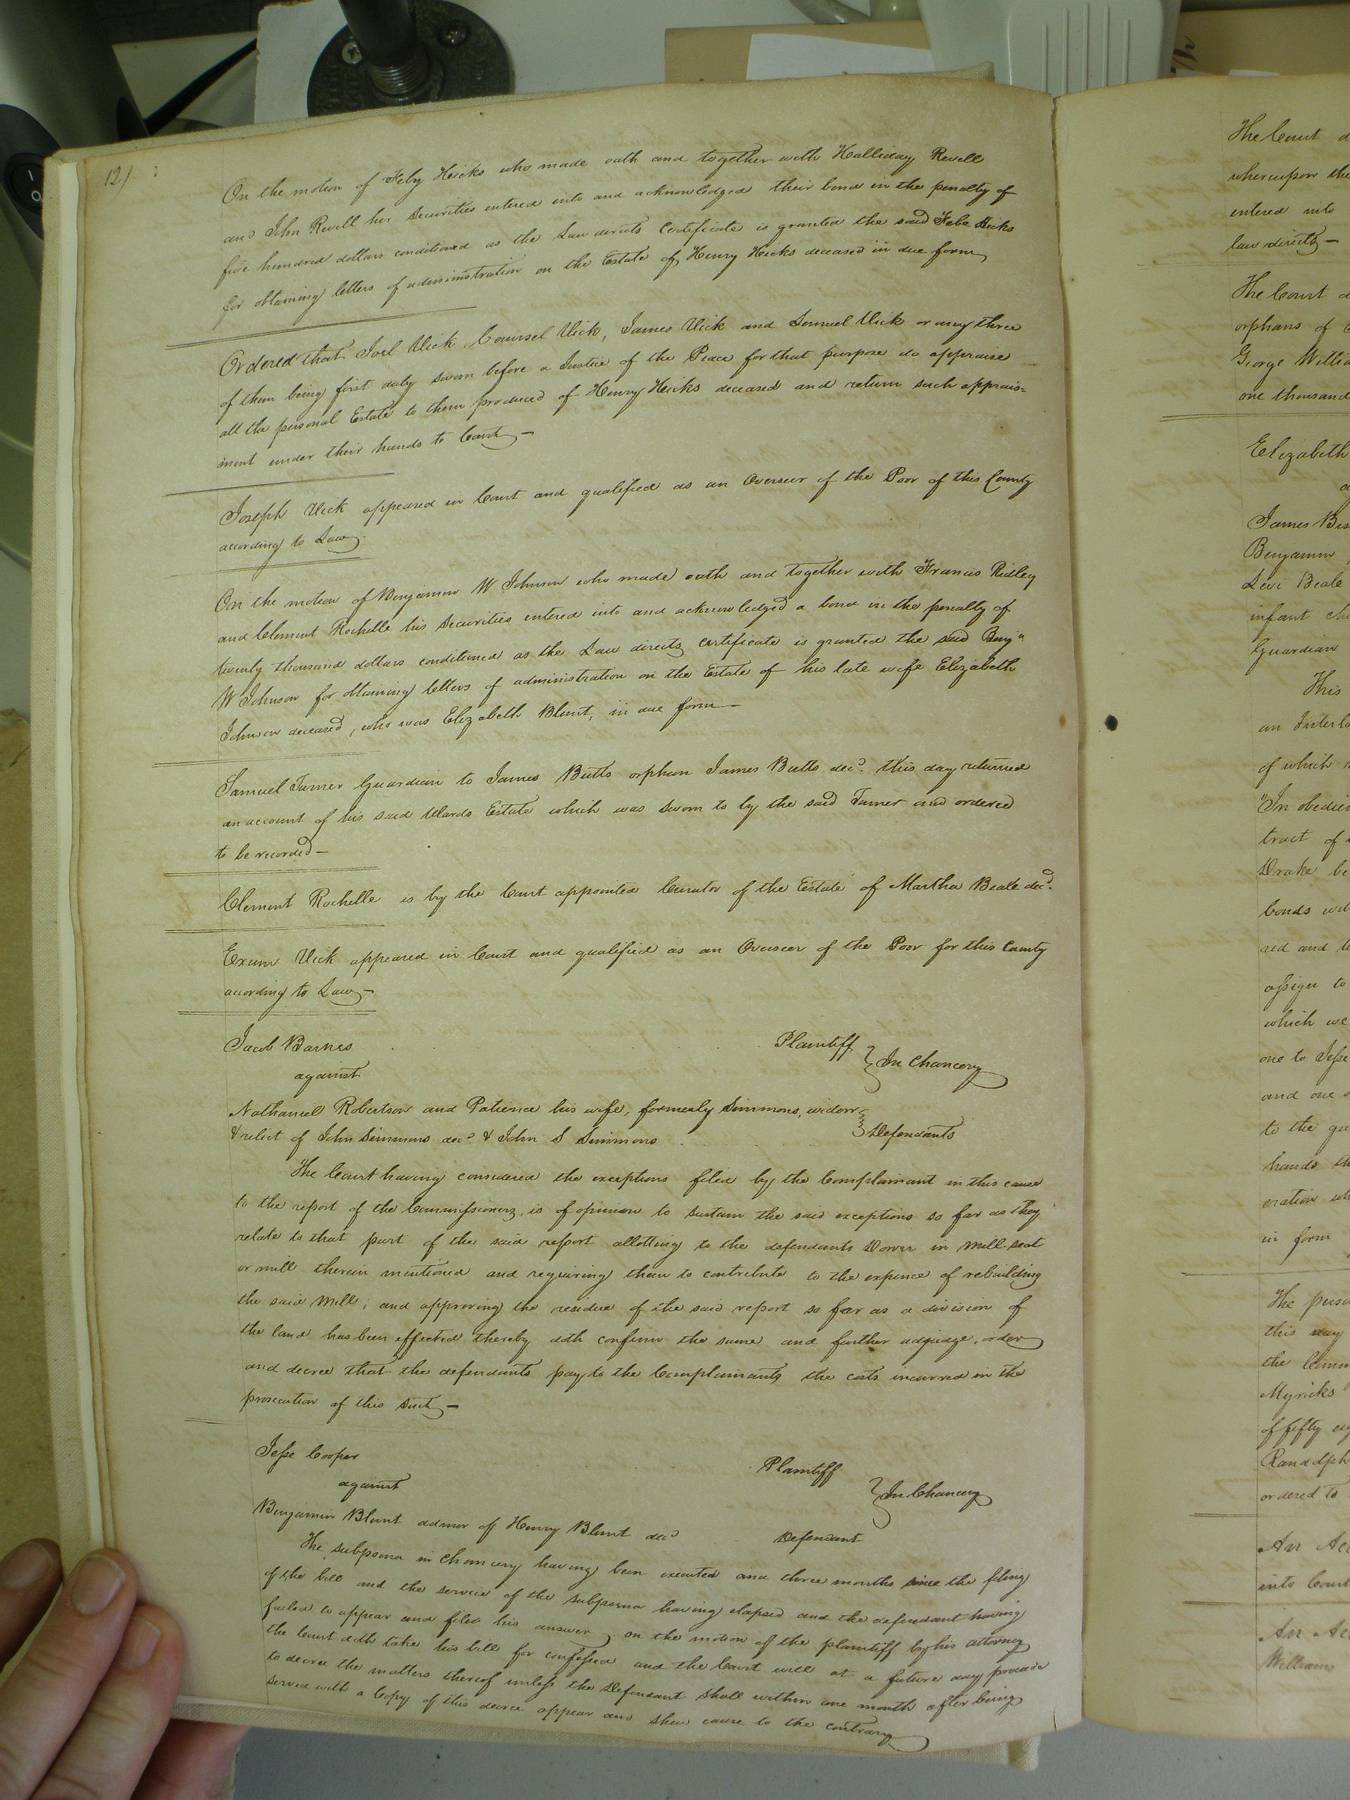 121
On the motion of Feby Hicks who made oath and together with Halliday Revell
and John Revell her Securities entered into and acknowledged their bond in the penalty of
five hundred dollars conditioned as the Law directs Certificate is granted the said Febe Hicks
for obtaining letters of administration on the Estate of Henry Hicks deceased in due form
Ordered that Joel Vick, Counsel Vick, James Vick and Lemuel Vick or any three
of them being first duly sworn before a Justice of the Peace for that purpose do appraise
all the personal Estate to them produced of Henry Hicks deceased and return such apprais=
ment under their hands to Court —
Joseph Vick appeared in Court and qualified as an Overseer of the Poor of this County
according to Law
On the motion of Benjamin W Johnson who made oath and together with Francis Ridley
and Clement Rochelle his Securities entered into and acknowledged a bond in the penalty of
twenty thousand dollars conditioned as the Law directs certificate is granted the said Benjn
W Johnson for obtaining letters of administration on the Estate of his late wife Elizabeth
Johnson deceased, who was Elizabeth Blunt, in due form —
Samuel Turner Guardian to James Butts orphan James Butts decd. this day returned
an account of his said Wards Estate which was sworn to by the said Turner and ordered
to be recorded —
Clement Rochelle is by the Court appointed Curator of the Estate of Martha Beale decd.
Exum Vick appeared in Court and qualified as an Overseer of the Poor for this County
according to Law —
Jacob Barnes Plaintiff
against In Chancery
Nathaniel Robertson and Patience his wife, formerly Simmons, widow
& relict of John Simmons decd & John S Simmons Defendants
The Court having considered the exceptions filed by the Complainant in this cause
to the report of the Commissioners, is of opinion to sustain the said exceptions so far as they
relate to that part of the said report allotting to the defendants Dower in mill seat
or mill therein mentioned and requiring them to contribute to the expence of rebuilding
the said Mill; and approving the residue of the said report so far as a division of
the land has been effected thereby doth confirm the same and further adjudge, order
and decree that the defendants pay to the Complainants the costs incurred in the
prosecution of this suit —
Jesse Cooper Plaintiff
against In Chancery
Benjamin Blunt admor of Henry Blunt decd Defendant
The subpoena in Chancery having been executed and three months since the filing
of the bill and the service of the subpoena having elapsed and the defendant having
failed to appear and file his answer, on the motion of the plaintiff by his attorney
the Court doth take his bill for confessed and the Court will at a future day proceed
to decree the matters thereof unless the Defendant shall within one month after being
served with a Copy of this decree appear and shew cause to the contrary
The Court
whereupon the
entered into
law directs —
The Court
orphans of
George
one thousand
Elizabeth
James
Benjamin
Levi Beale
infant
Guardian
This
an
of which
"In
tract of
Drake
bonds
and
assign to
which we
one to Jesse
and one
to the
hands

in form
The
this day
the
Myricks
of fifty
Randolph
ordered to
An
into Court
An
William